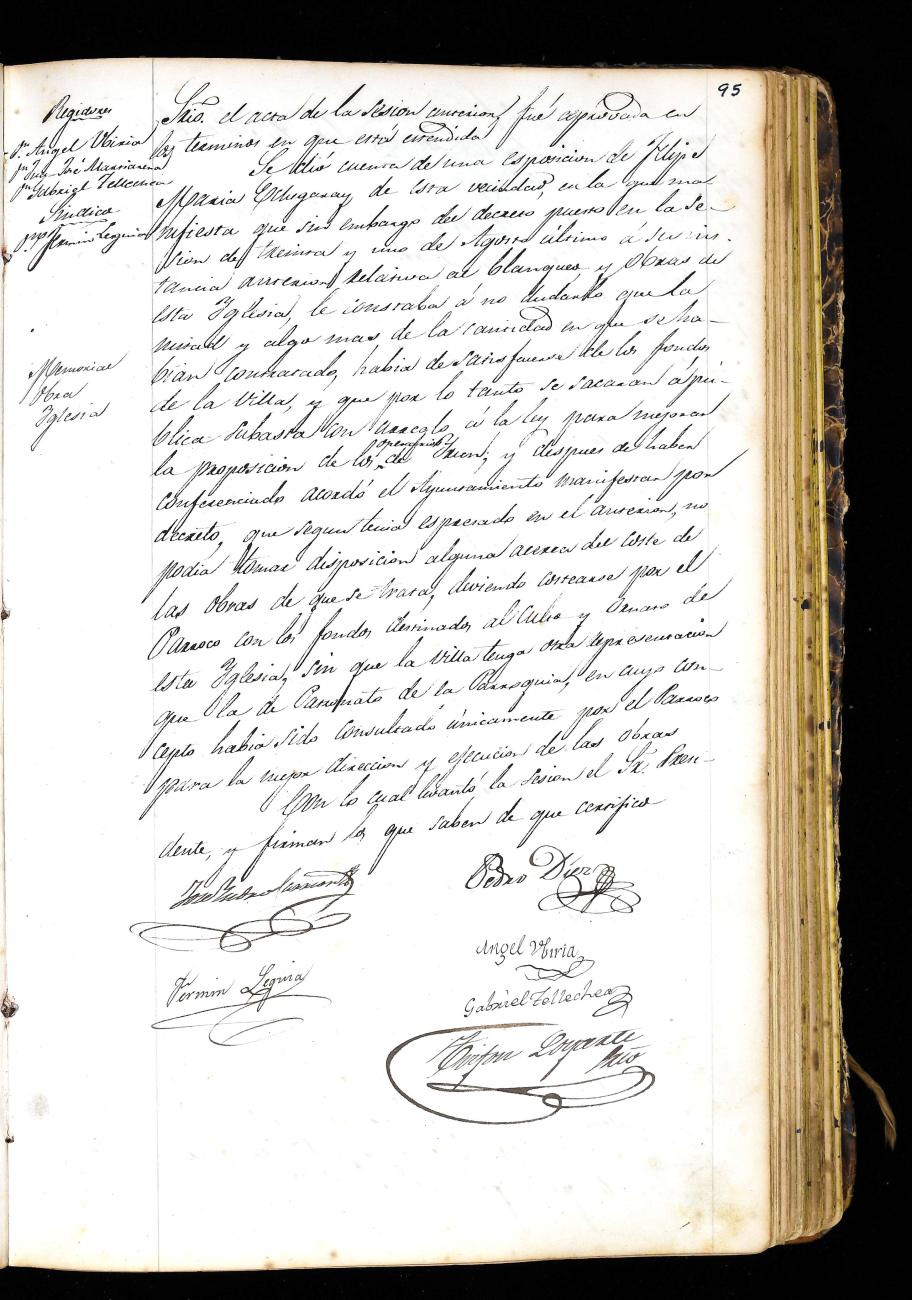 95
Regidores
D.n Angel Viria
D.n Juan José Marticorena
D.n Gabriel Tellechea
Sindico
D.n Fermin Leguia
Srio. el acta de la sesion anterior, fué aprovada en
los terminos en que está estendida
Se dió cuenta de una esposicion de Felipe
Maria Echegaray de esta vecindad, en la que ma-
nifiesta que sin embargo del decreto puesto en la se-
sion de treinta y uno de Agosto último á su ins-
tancia anterior relativa al blanqueo y obras de
esta Yglesia, le constaba á no dudarlo que la
mitad y algo mas de la cantidad en que se ha-
bian contratado, habia de satisfacerse de los fondos
de la Villa, y que por lo tanto se sacaran á pú-
blica subasta con arreglo á la ley para mejorar
la proposicion de los operarios de Yrun; y despues de haber
conferenciado acordó el Ayuntamiento manifestar por
decreto, que segun tenia espresado en el anterior, no
podia tomar disposicion alguna acerca del coste de
las obras de que se trata, deviendo costearse por el
Parroco con los fondos destinados al culto y ornato de
esta Yglesia, sin que la Villa tenga otra representacion
que la de Patronato de la Parroquia, en cuyo con-
cepto habia sido consultado únicamente por el Parroco
para la mejor direccion y ejecucion de las obras
Con lo cual levantó la sesion el Sr. Presi-
dente, y firman los que saben de que certifico
Memorial
Obra
Yglesia
Pedro Diez
Angel Viria
Fermin Leguia
Gabriel Tellechea
Srio